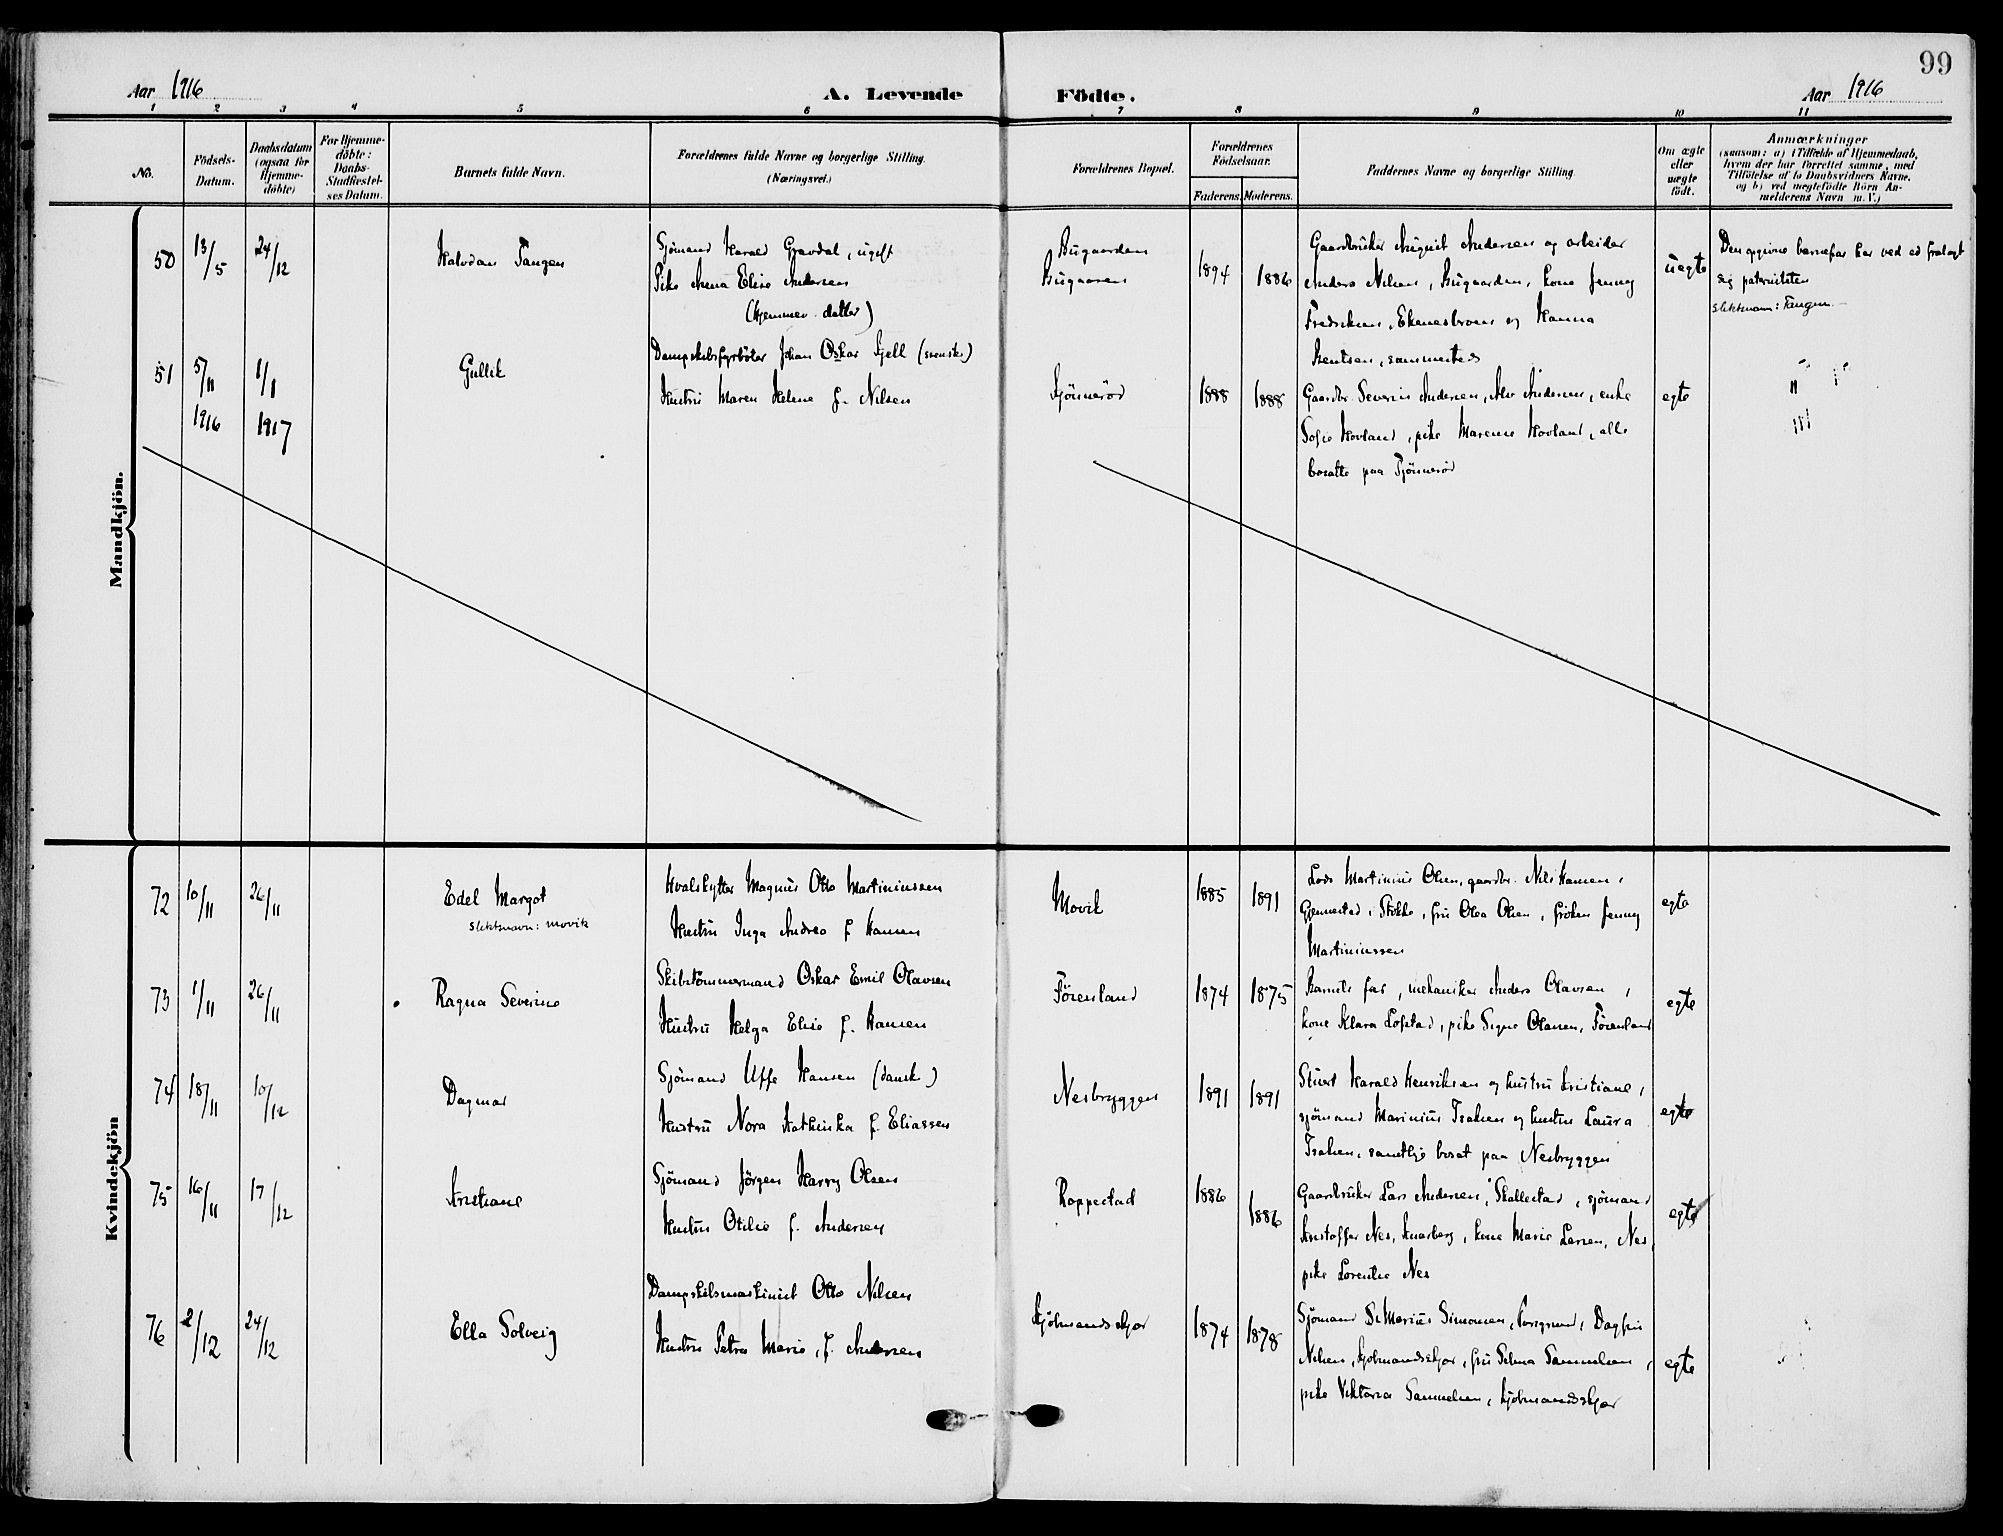 99
Aar 1916
A. Levende Födte.
Aar 1916
1 2 3 4 5 6 7 8 9 10 11
No.
Födsels-Datum.
Daabsdatum (ogsaa for Hjemme-döbte)
For Hjemme-döbte: Daabs-Stadfæstel-ses Datum.
Barnets fulde Navn.
Forældrenes fulde Navne og borgerlige Stilling.
(Næringsvei.)
Forældrenes Bopæl.
Forældrenes Födselsaar.
Faderens. Moderens.
Faddernes Navne og borgerlige Stilling.
Om ægte eller uægte födt.
Anmærkninger
(saasom: a) i Tilfælde af Hjemmedaab,
hvem der har forrettet samme, med
Tilföielse af to Daabsvidners Navne,
og b) ved uægtefödte Börn An-
melderens Navn m. V.)
Mandkjön.
50 13/5 24/12 Halvdan Tangen
Sjömand Harald Gravdal, ugift
Pike Anna Elise Andersen
(hjemmev. datter)
Bugaarden
Bugaarden
1894 1886
Gaardbruker August Andersen og arbeider
Anders Nilsen, Bugaarden, kone Jenny
Fredriksen, Ekenesbroen og Hanna
Bentsen, sammesteds
uegte
Den opgivne barnefar har ved ed fralagt
sig paterniteten
slektsnavn: Tangen.
51 5/11 1916 1/1 1917 Gullik
Dampskibsfyrböter Johan Oskar Kjell (svenske)
Hustru Maren Helene f. Nilsen
Tjönneröd
1888 1888
Gaardbr. Severin Andersen, Alv Andersen, enke
Sofie Hovland, pike Marenne Hovland, alle
bosatte paa Tjönneröd
egte
Kvindekjön
72 10/11 26/11 Edel Margot
slektsnavn: Movik
Hvalskytter Magnus Otto Martiniussen
Hustru Inga Andrea f. Hansen
Movik
1885 1891
Lods Martinius Olsen, gaardbr. Nils Hansen,
Gjennestad i Stokke, fru Olea Olsen, fröken Jenny
Martiniussen
egte
73 1/11 26/11 Ragna Severine
Skibstömmermand Oskar Emil Olavsen
Hustru Helga Elise f. Hansen
Förenland
1874 1875
Barnets far, mekaniker Anders Olavsen,
kone Klara Lofstad, pike Signe Olausen, Förenland
egte
74 18/11 10/12 Dagmar
Sjömand Uffe Hansen (danske)
Hustru Nora Kathinka f. Eliassen
Nesbryggen
1891 1891
Stuert Harald Henriksen og hustru Kristiane,
sjömand Marinius Isaksen og hustru Laura
Isaksen, samtlige bosat paa Nesbryggen
egte
75 16/11 17/12 Kristiane
Sjömand Jörgen Harry Olsen
Hustru Otilie f. Andersen
Roppestad
1886 1886
Gaardbruker Lars Andersen, Skallestad, sjömand
Kristoffer Nes, Knarberg, kone Marie Larsen, Nes,
pike Lorentze Nes
egte
76 2/12 24/12 Ella Solveig
Dampskibsmaskinist Otto Nilsen
Hustru Petra Marie, f. Andersen
Kjöbmandskjær
1874 1878
Sjömand Marius Simonsen, Dagfin
Nilsen, Kjöbmandskjær, fru Selma Samuelsen,
pike Viktoria Samuelsen, Kjöbmandskjær
egte